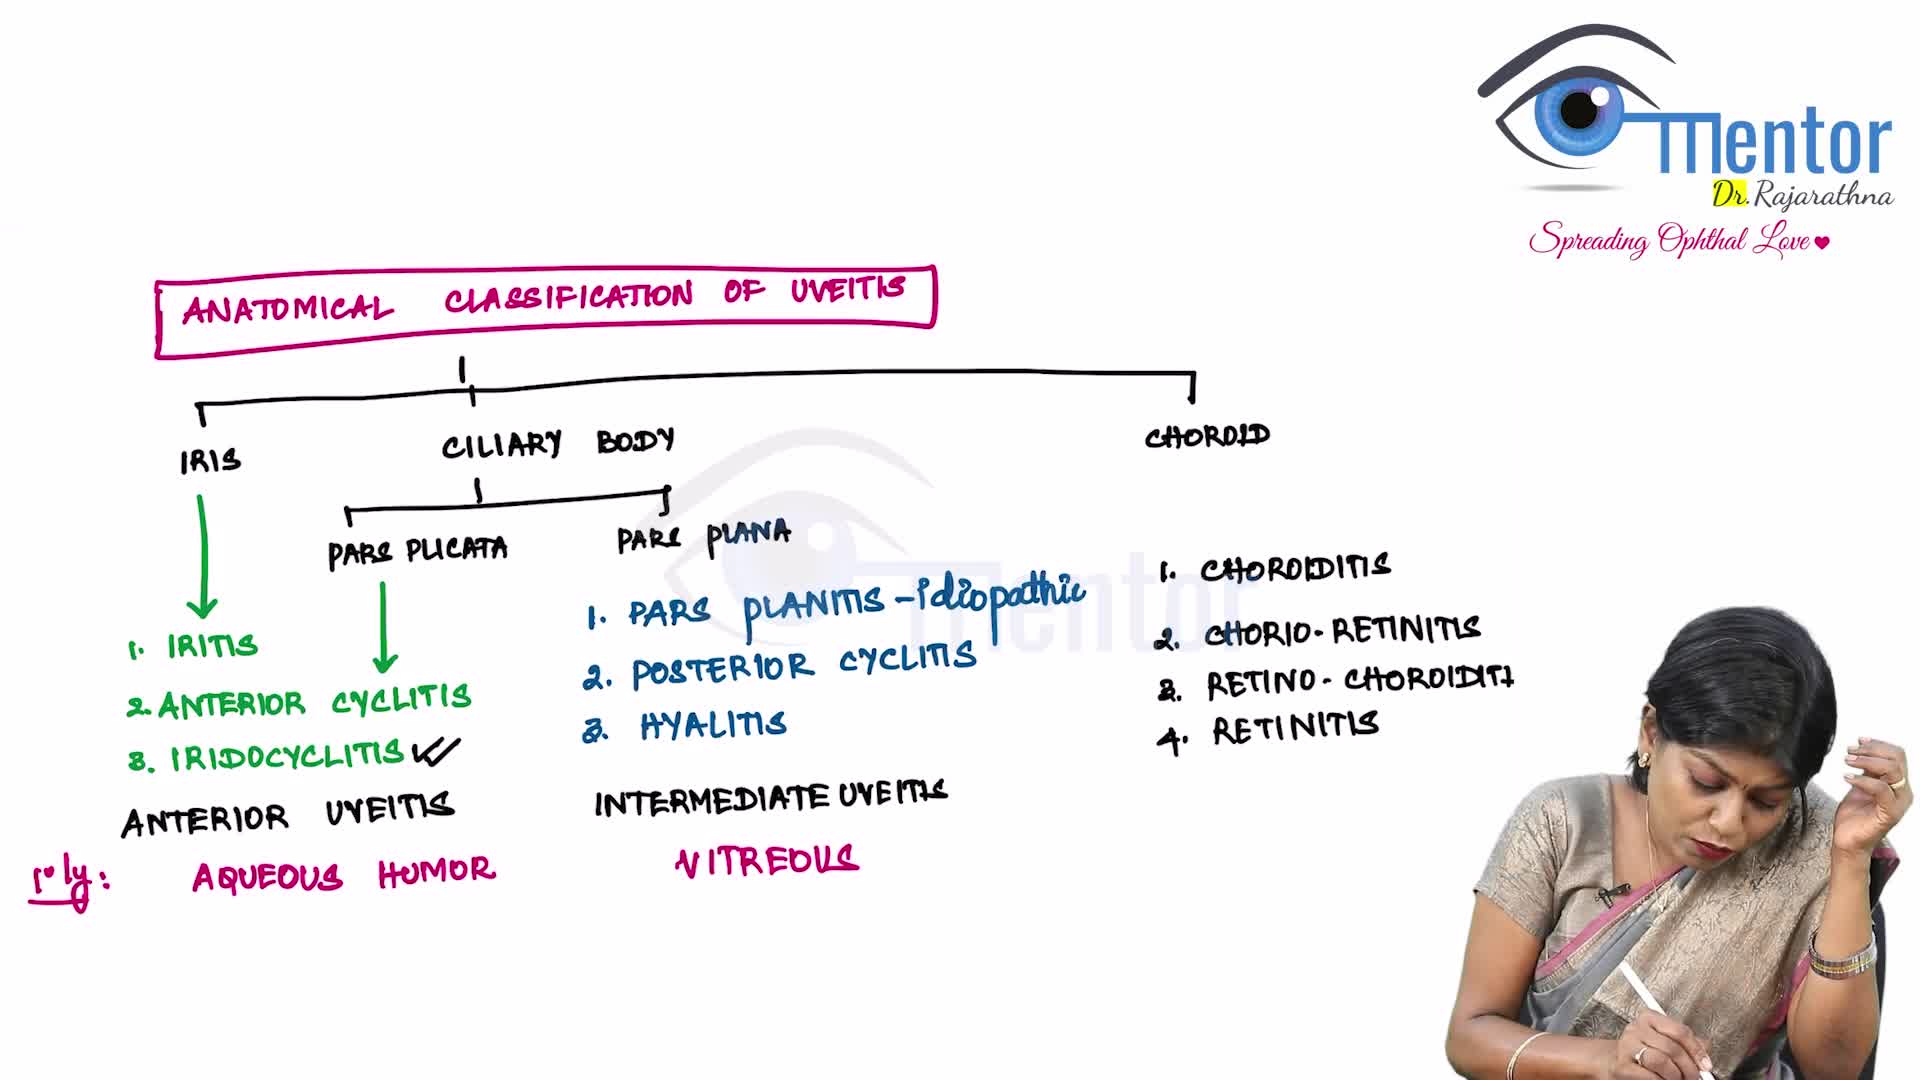 mentor
Dr. Rajarathna
Spreading Ophthal Love
ANATOMICAL CLASSIFICATION OF UVEITIS
IRIS
CILIARY BODY
CHOROID
PARS PLICATA
PARS PLANA
1. IRITIS
2. ANTERIOR CYCLITIS
3. IRIDOCYCLITIS
ANTERIOR UVEITIS
1. PARS PLANITIS - idiopathic
2. POSTERIOR CYCLITIS
3. HYALITIS
INTERMEDIATE UVEITIS
1. CHOROIDITIS
2. CHORIO-RETINITIS
3. RETINO-CHOROIDITI
4. RETINITIS
AQUEOUS HUMOR
VITREOUS
mentor